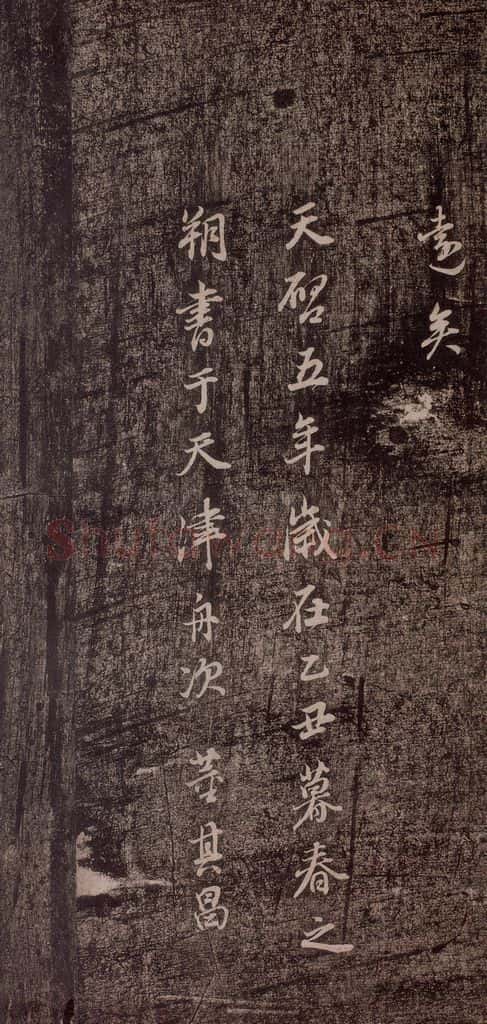 遠矣
天啓五年歲在乙丑暮春之
朔書于天津舟次 董其昌